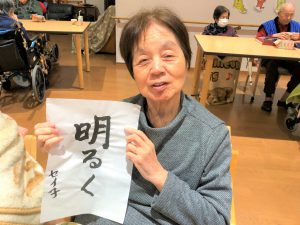 明るく
セイ子